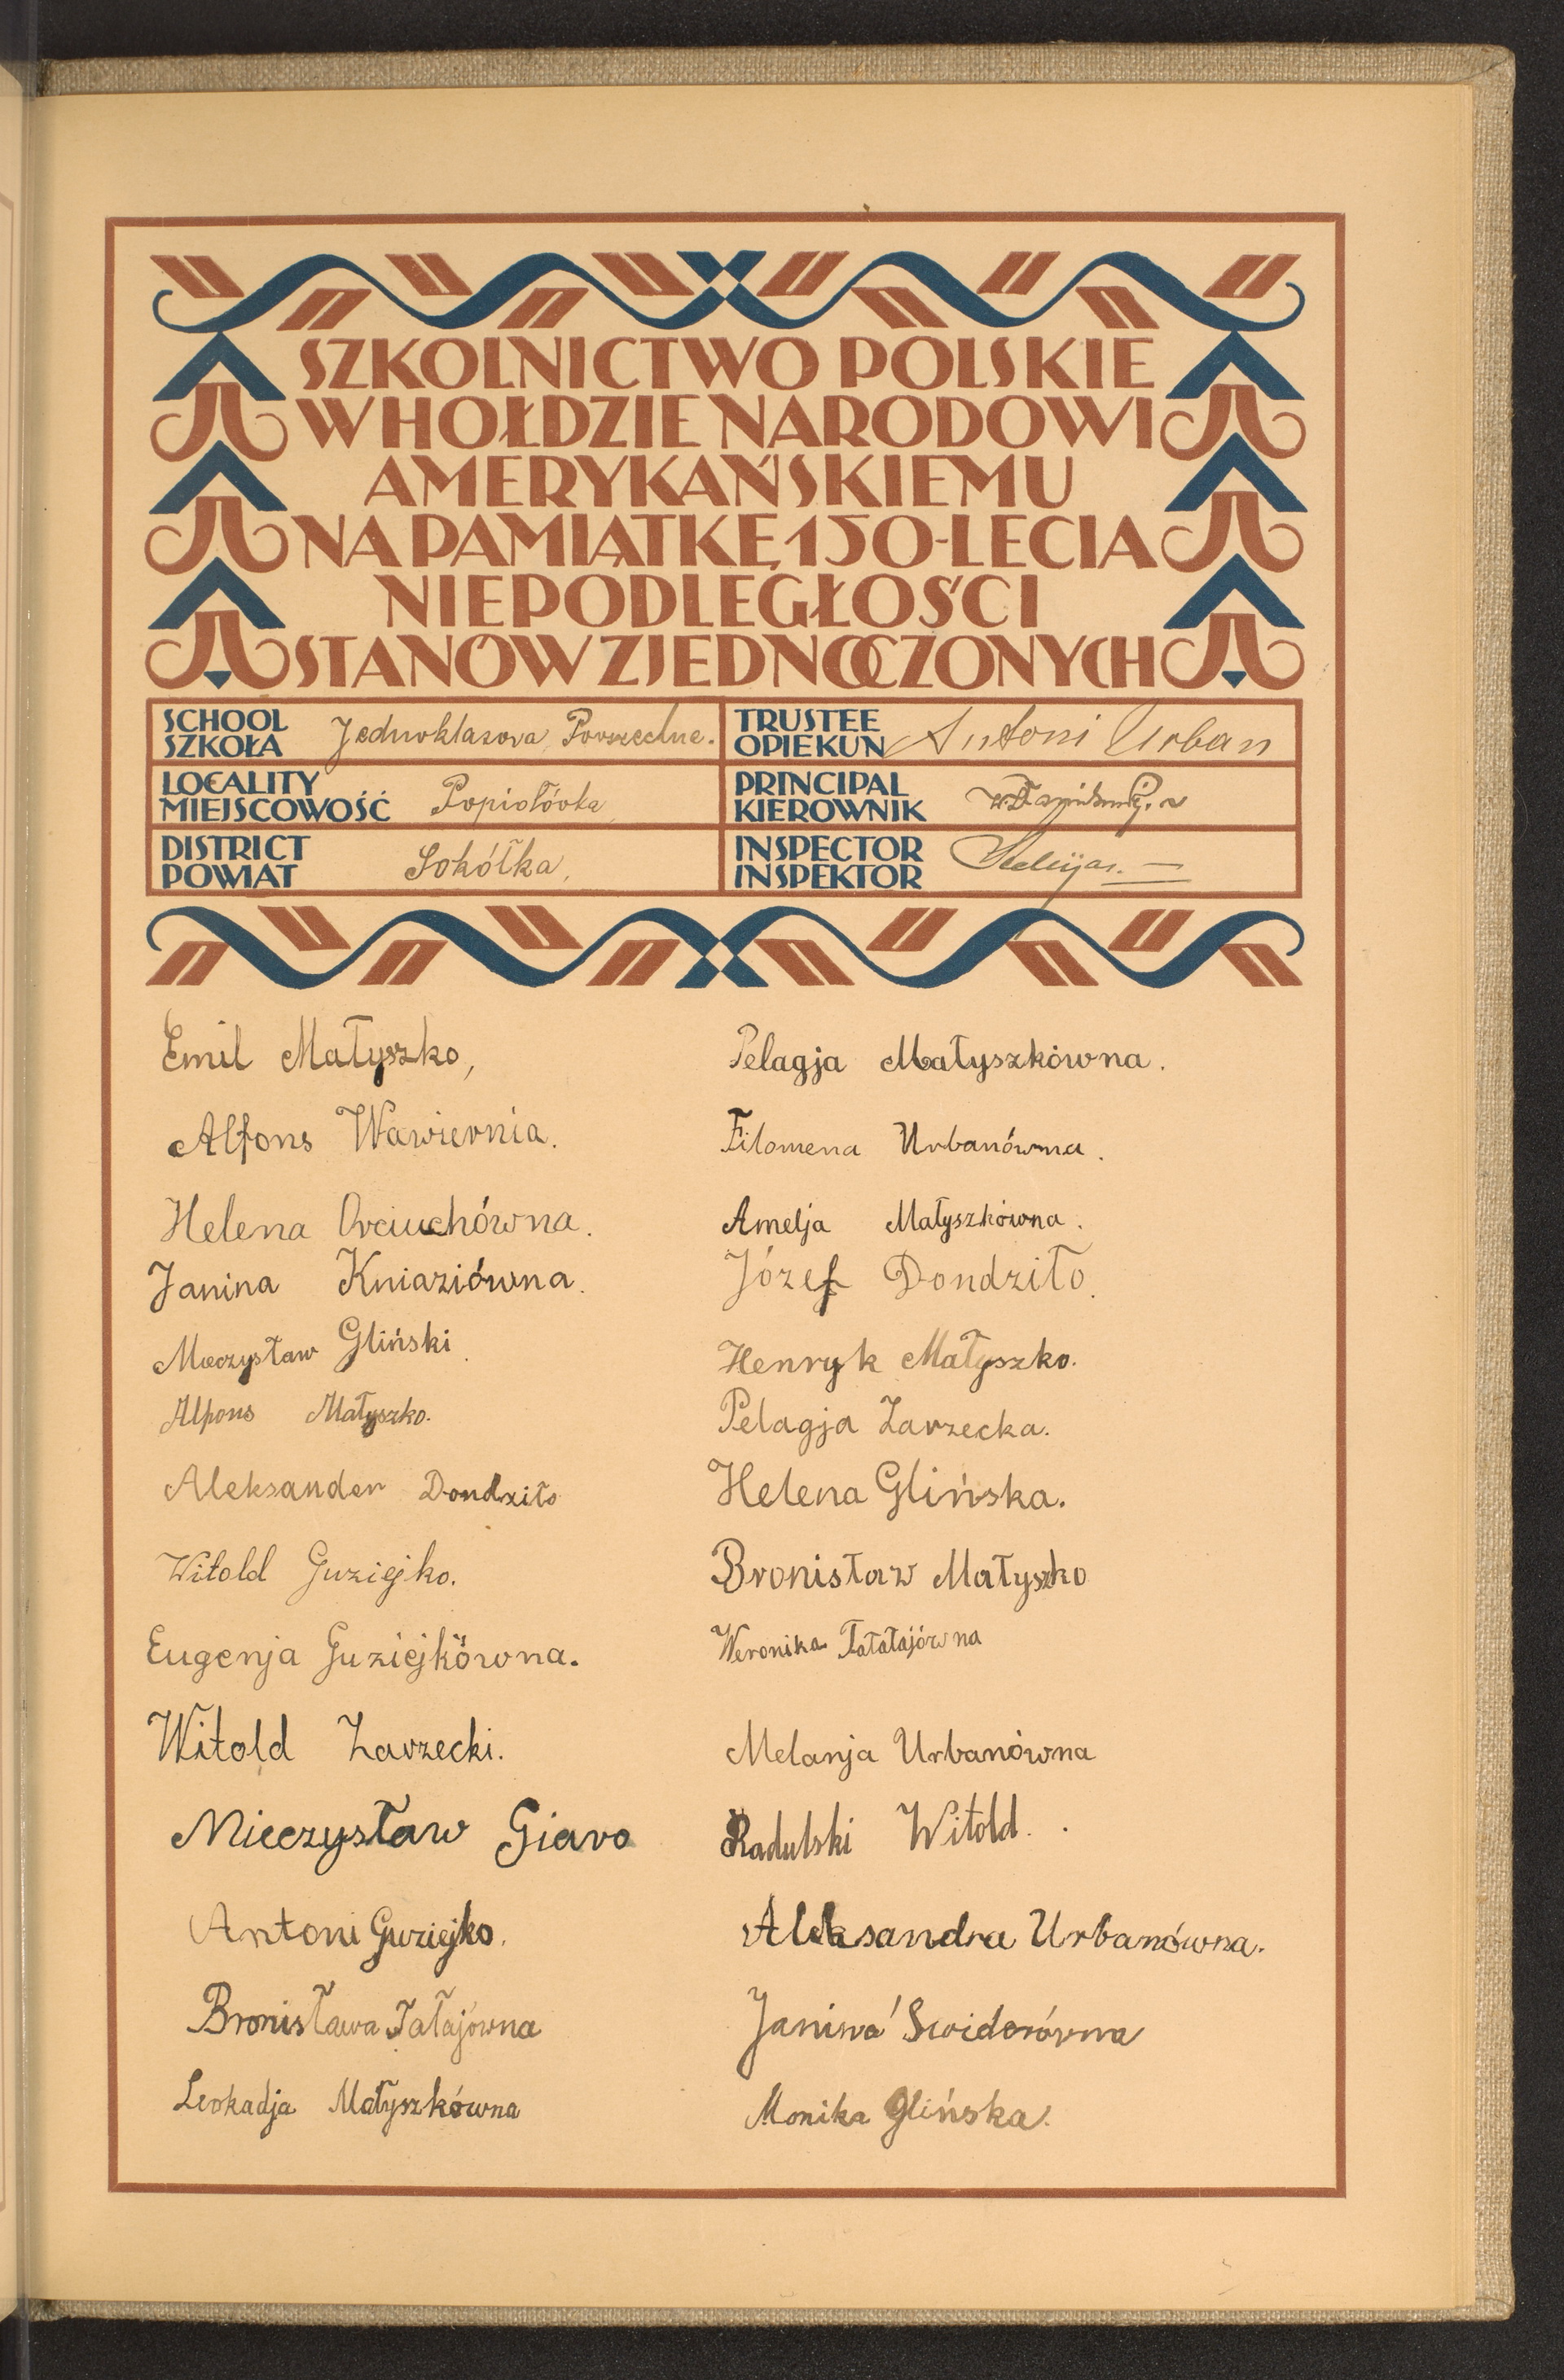 SZKOLNICTWO POLSKIE
W HOŁDZIE NARODOWI
AMERYKAŃSKIEMU
NA PAMIĄTKĘ 150-LECIA
NIEPODLEGŁOŚCI
STANÓW ZJEDNOCZONYCH
SCHOOL
SZKOŁA Jednoklasowa Powszechne.
TRUSTEE
OPIEKUN Antoni Urban
LOCALITY
MIEJSCOWOŚĆ Popiołówka
PRINCIPAL
KIEROWNIK
DISTRICT
POWIAT Sokółka,
INSPECTOR
INSPEKTOR
Emil Małyszko,
Alfons Wawiernia.
Helena Orciuchówna.
Janina Kniaziówna.
Mieczysław Gliński.
Alfons Małyszko.
Aleksander Dondziło
Witold Guziejko.
Eugenja Guziejkówna.
Witold Zarzecki.
Mieczysław Giaro
Antoni Guziejko.
Bronisława Tałajówna
Leokadja Małyszkówna
Pelagja Małyszkówna.
Filomena Urbanówna.
Amelja Małyszkówna.
Józef Dondziło.
Henryk Małyszko.
Pelagja Zarzecka.
Helena Glińska.
Bronisław Małyszko
Weronika Tałałajówna
Melanja Urbanówna
Radulski Witold.
Aleksandra Urbanówna.
Janina Swiderówna
Monika Glińska.